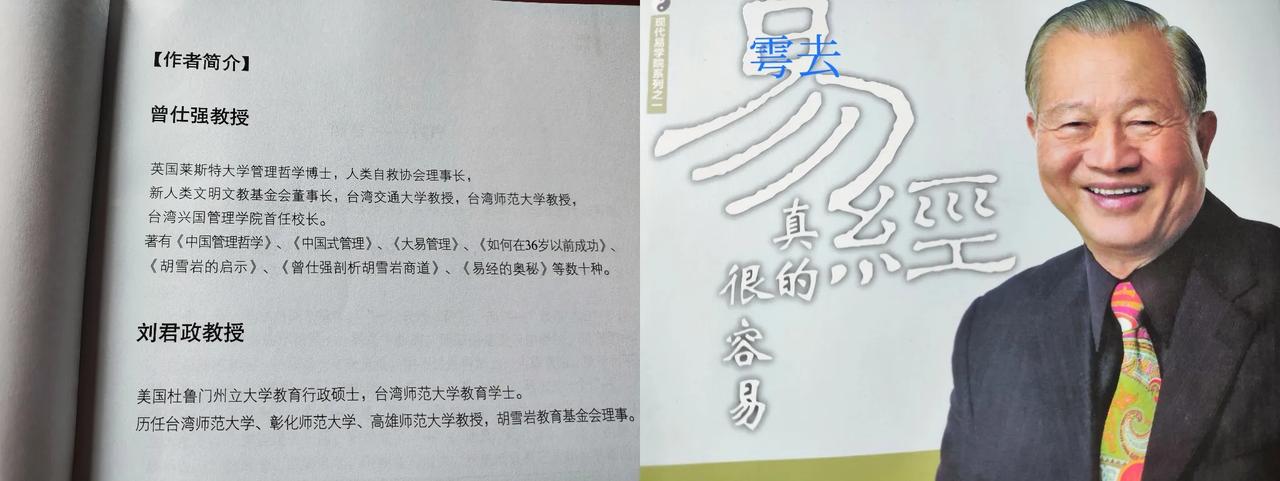 【作者简介】
曾仕强教授
英国莱斯特大学管理哲学博士，人类自救协会理事长，
新人类文明文教基金会董事长，台湾交通大学教授，台湾师范大学教授，
台湾兴国管理学院首任校长。
著有《中国管理哲学》、《中国式管理》、《大易管理》、《如何在36岁以前成功》、
《胡雪岩的启示》、《曾仕强剖析胡雪岩商道》、《易经的奥秘》等数十种。
刘君政教授
美国杜鲁门州立大学教育行政硕士，台湾师范大学教育学士。
历任台湾师范大学、彰化师范大学、高雄师范大学教授，胡雪岩教育基金会理事。
现代易学院系列之一
雩去
易經
真的
很容易